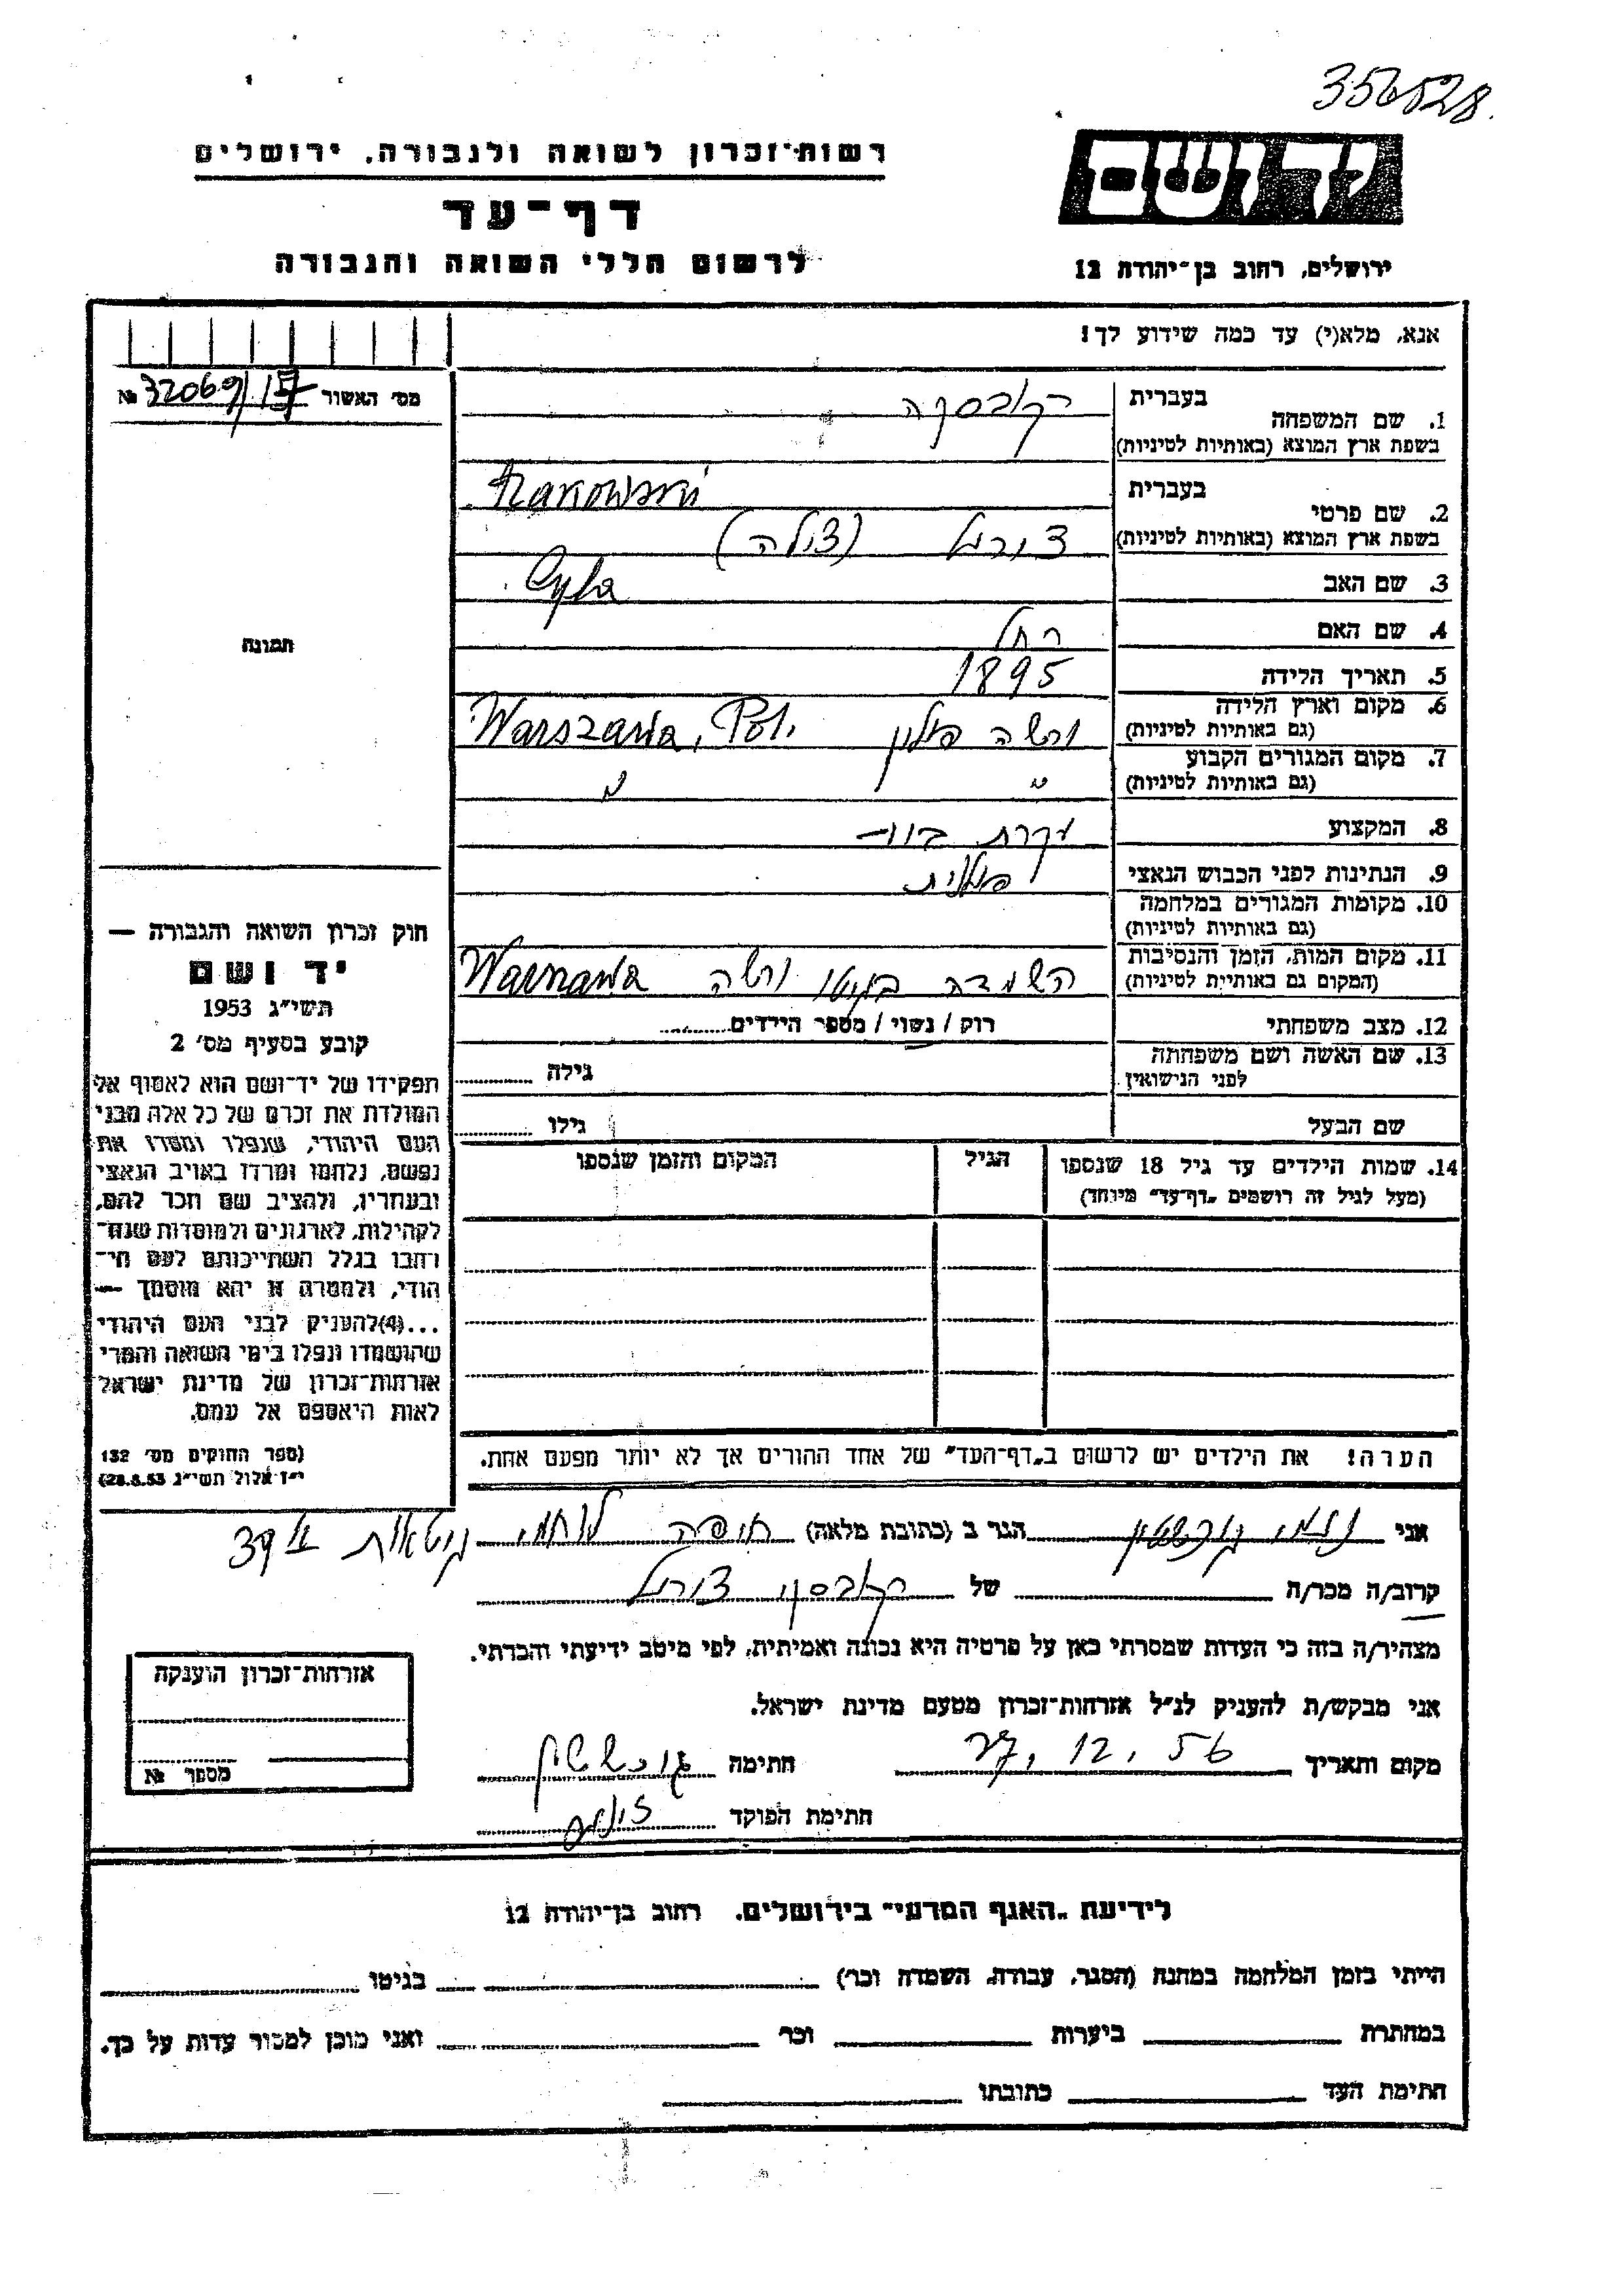 356828.
רשות־זכרון לשואה ולגבורה, ירושלים
יד ושם
דף־עד
לרשום חללי השואה והגבורה
ירושלים, רחוב בן־יהודה 12
אנא, מלא(י) עד כמה שידוע לך!
מס׳ האשור № 32069/17
1. שם המשפחה
בעברית רקובסקה
בשפת ארץ המוצא (באותיות לטיניות)
Rakowski
2. שם פרטי
בעברית
צירל (צילה)
בשפת ארץ המוצא (באותיות לטיניות)
Cyla
3. שם האב
4. שם האם רחל
5. תאריך הלידה 1895
6. מקום וארץ הלידה
(גם באותיות לטיניות) ורשה פולין Warszawa, Pol.
7. מקום המגורים הקבוע
(גם באותיות לטיניות) " "
8. המקצוע עקרת בית
9. הנתינות לפני הכבוש הנאצי פולנית
10. מקומות המגורים במלחמה
(גם באותיות לטיניות)
11. מקום המות, הזמן והנסיבות
(המקום גם באותיות לטיניות) השמדה בגיטו ורשה Warszawa
12. מצב משפחתי רוק / נשוי / מספר הילדים
13. שם האשה ושם משפחתה
לפני הנישואין גילה
שם הבעל גילו
14. שמות הילדים עד גיל 18 שנספו
(מעל לגיל זה רושמים „דף־עד" מיוחד)
הגיל
המקום והזמן שנספו
הערה! את הילדים יש לרשום ב„דף־העד" של אחד ההורים אך לא יותר מפעם אחת.
תמונה
חוק זכרון השואה והגבורה —
יד ושם
תשי״ג 1953
קובע בסעיף מס׳ 2
תפקידו של יד־ושם הוא לאסוף אל
המולדת את זכרם של כל אלה מבני
העם היהודי, שנפלו ומסרו את
נפשם, נלחמו ומרדו באויב הנאצי
ובעוזריו, ולהציב שם וזכר להם,
לקהילות, לארגונים ולמוסדות שנח־
רבו בגלל השתייכותם לעם הי־
הודי, ולמטרה זו יהא מוסמך —
...(4)להעניק לבני העם היהודי
שהושמדו ונפלו בימי השואה והמרי
אזרחות־זכרון של מדינת ישראל
לאות היאספם אל עמם.
(ספר החוקים מס׳ 132
י״ז אלול תשי״ג 28.8.53)
אני הגר ב (כתובת מלאה) חיפה לוחמי גיטאות 39
קרוב/ה מכר/ה של רקובסקי צירל
מצהיר/ה בזה כי העדות שמסרתי כאן על פרטיה היא נכונה ואמיתית, לפי מיטב ידיעתי והכרתי.
אני מבקש/ת להעניק לנ״ל אזרחות־זכרון מטעם מדינת ישראל.
מקום ותאריך 27.12.56 חתימה
חתימת הפוקד
אזרחות־זכרון הוענקה
מספר №
לידיעת „האגף המדעי" בירושלים. רחוב בן־יהודה 12
הייתי בזמן המלחמה במחנה (הסגר, עבודה, השמדה וכו׳) בגיטו
במחתרת ביערות וכו׳ ואני מוכן למסור עדות על כך.
חתימת העד כתובתו